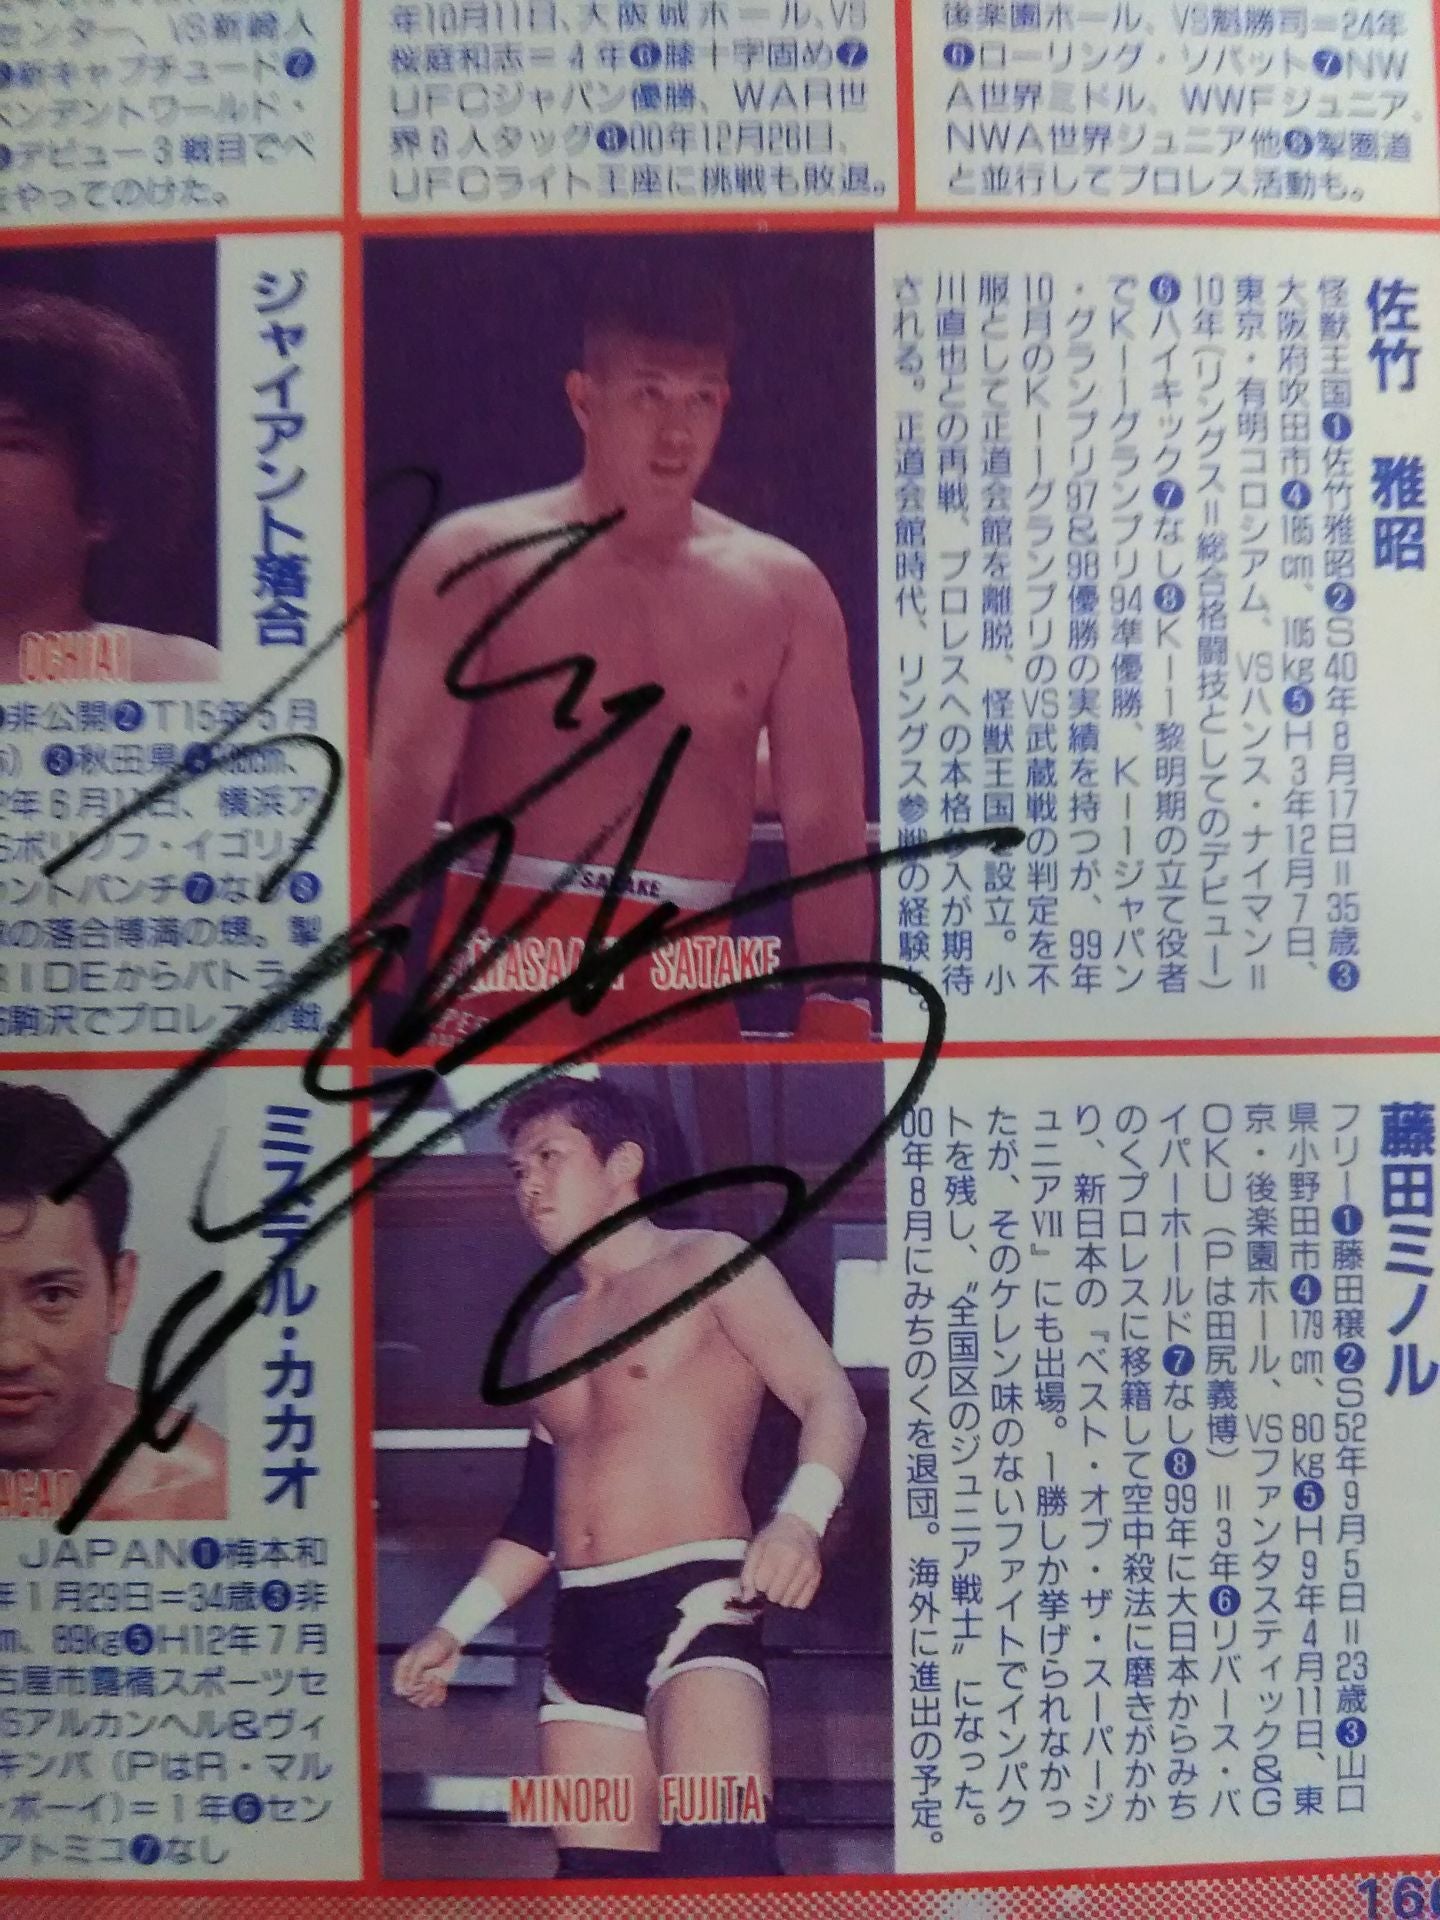 年10月11日、大阪城ホール、VS
桜庭和志＝4年❻膝十字固め❼
UFCジャパン優勝、WAR世
界6人タッグ❽00年12月26日、
UFCライト王座に挑戦も敗退。
後楽園ホール、VS魁勝司＝24年
❻ローリング・ソバット❼NW
A世界ミドル、WWFジュニア、
NWA世界ジュニア他❽掣圏道
と並行してプロレス活動も。
センター、VS新崎人
新キャプチュード❼
ペンデントワールド・
デビュー3戦目でベ
をやってのけた。
佐竹 雅昭
怪獣王国❶佐竹雅昭❷S40年8月17日＝35歳❸
大阪府吹田市❹185cm、105kg❺H3年12月7日、
東京・有明コロシアム、VSハンス・ナイマン＝
10年（リングス＝総合格闘技としてのデビュー）
❻ハイキック❼なし❽K－1黎明期の立て役者
でK－1グランプリ94準優勝、K－1ジャパン
・グランプリ97&98優勝の実績を持つが、99年
10月のK－1グランプリのVS武蔵戦の判定を不
服として正道会館を離脱、怪獣王国を設立。小
川直也との再戦、プロレスへの本格参入が期待
される。正道会館時代、リングス参戦の経験も。
SATAKE
MASAAKI SATAKE
ジャイアント落合
OCHIAI
非公開❷T15年5月
❸秋田県
年6月11日、横浜ア
ントパンチ❼なし❽
の落合博満の甥。掣
IDEからバトラー
駒沢でプロレス
藤田ミノル
フリー❶藤田穣❷S52年9月5日＝23歳❸山口
県小野田市❹179cm、80kg❺H9年4月11日、東
京・後楽園ホール、VSファンタスティック&G
OKU（Pは田尻義博）＝3年❻リバース・バ
イパーホールド❼なし❽99年に大日本からみち
のくプロレスに移籍して空中殺法に磨きがかか
り、新日本の『ベスト・オブ・ザ・スーパージ
ュニアⅦ』にも出場。1勝しか挙げられなかっ
たが、そのケレン味のないファイトでインパク
トを残し、〝全国区のジュニア戦士〟になった。
00年8月にみちのくを退団。海外に進出の予定。
MINORU FUJITA
ミステル・カカオ
JAPAN❶梅本和
年1月29日＝34歳❸非
89kg❺H12年7月
古屋市露橋スポーツセ
VSアルカンヘル&ヴィ
キンバ（PはR・マル
・ボーイ）＝1年❻セン
アトミコ❼なし